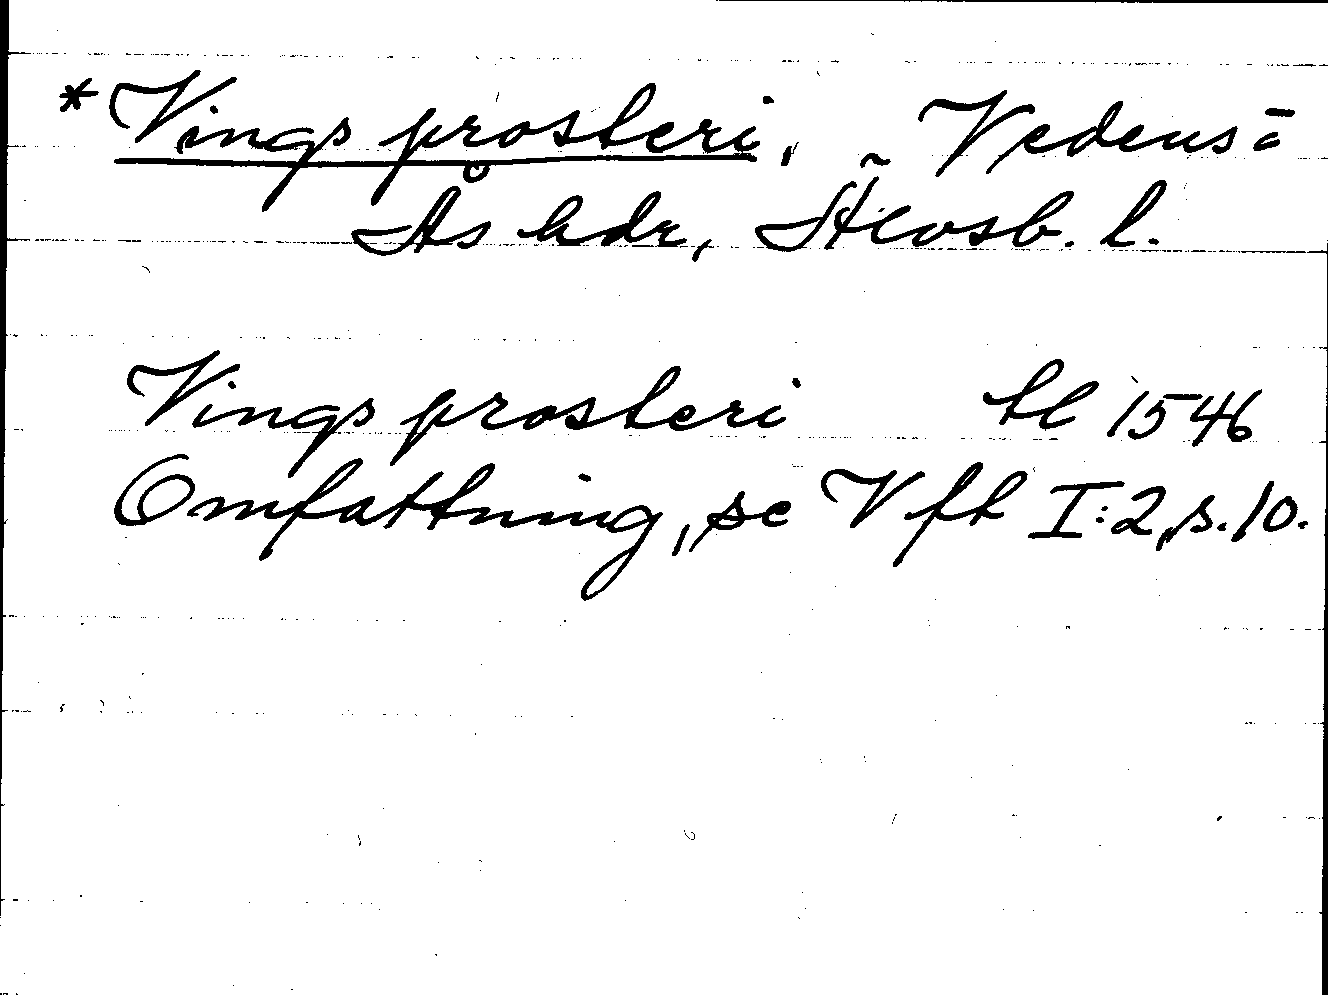 * Vings prosteri, Vedens=
Ås hdr, Älvsb. l.
Vings prosteri tl 1546
Omfattning, se Vft I:2, s. 10.